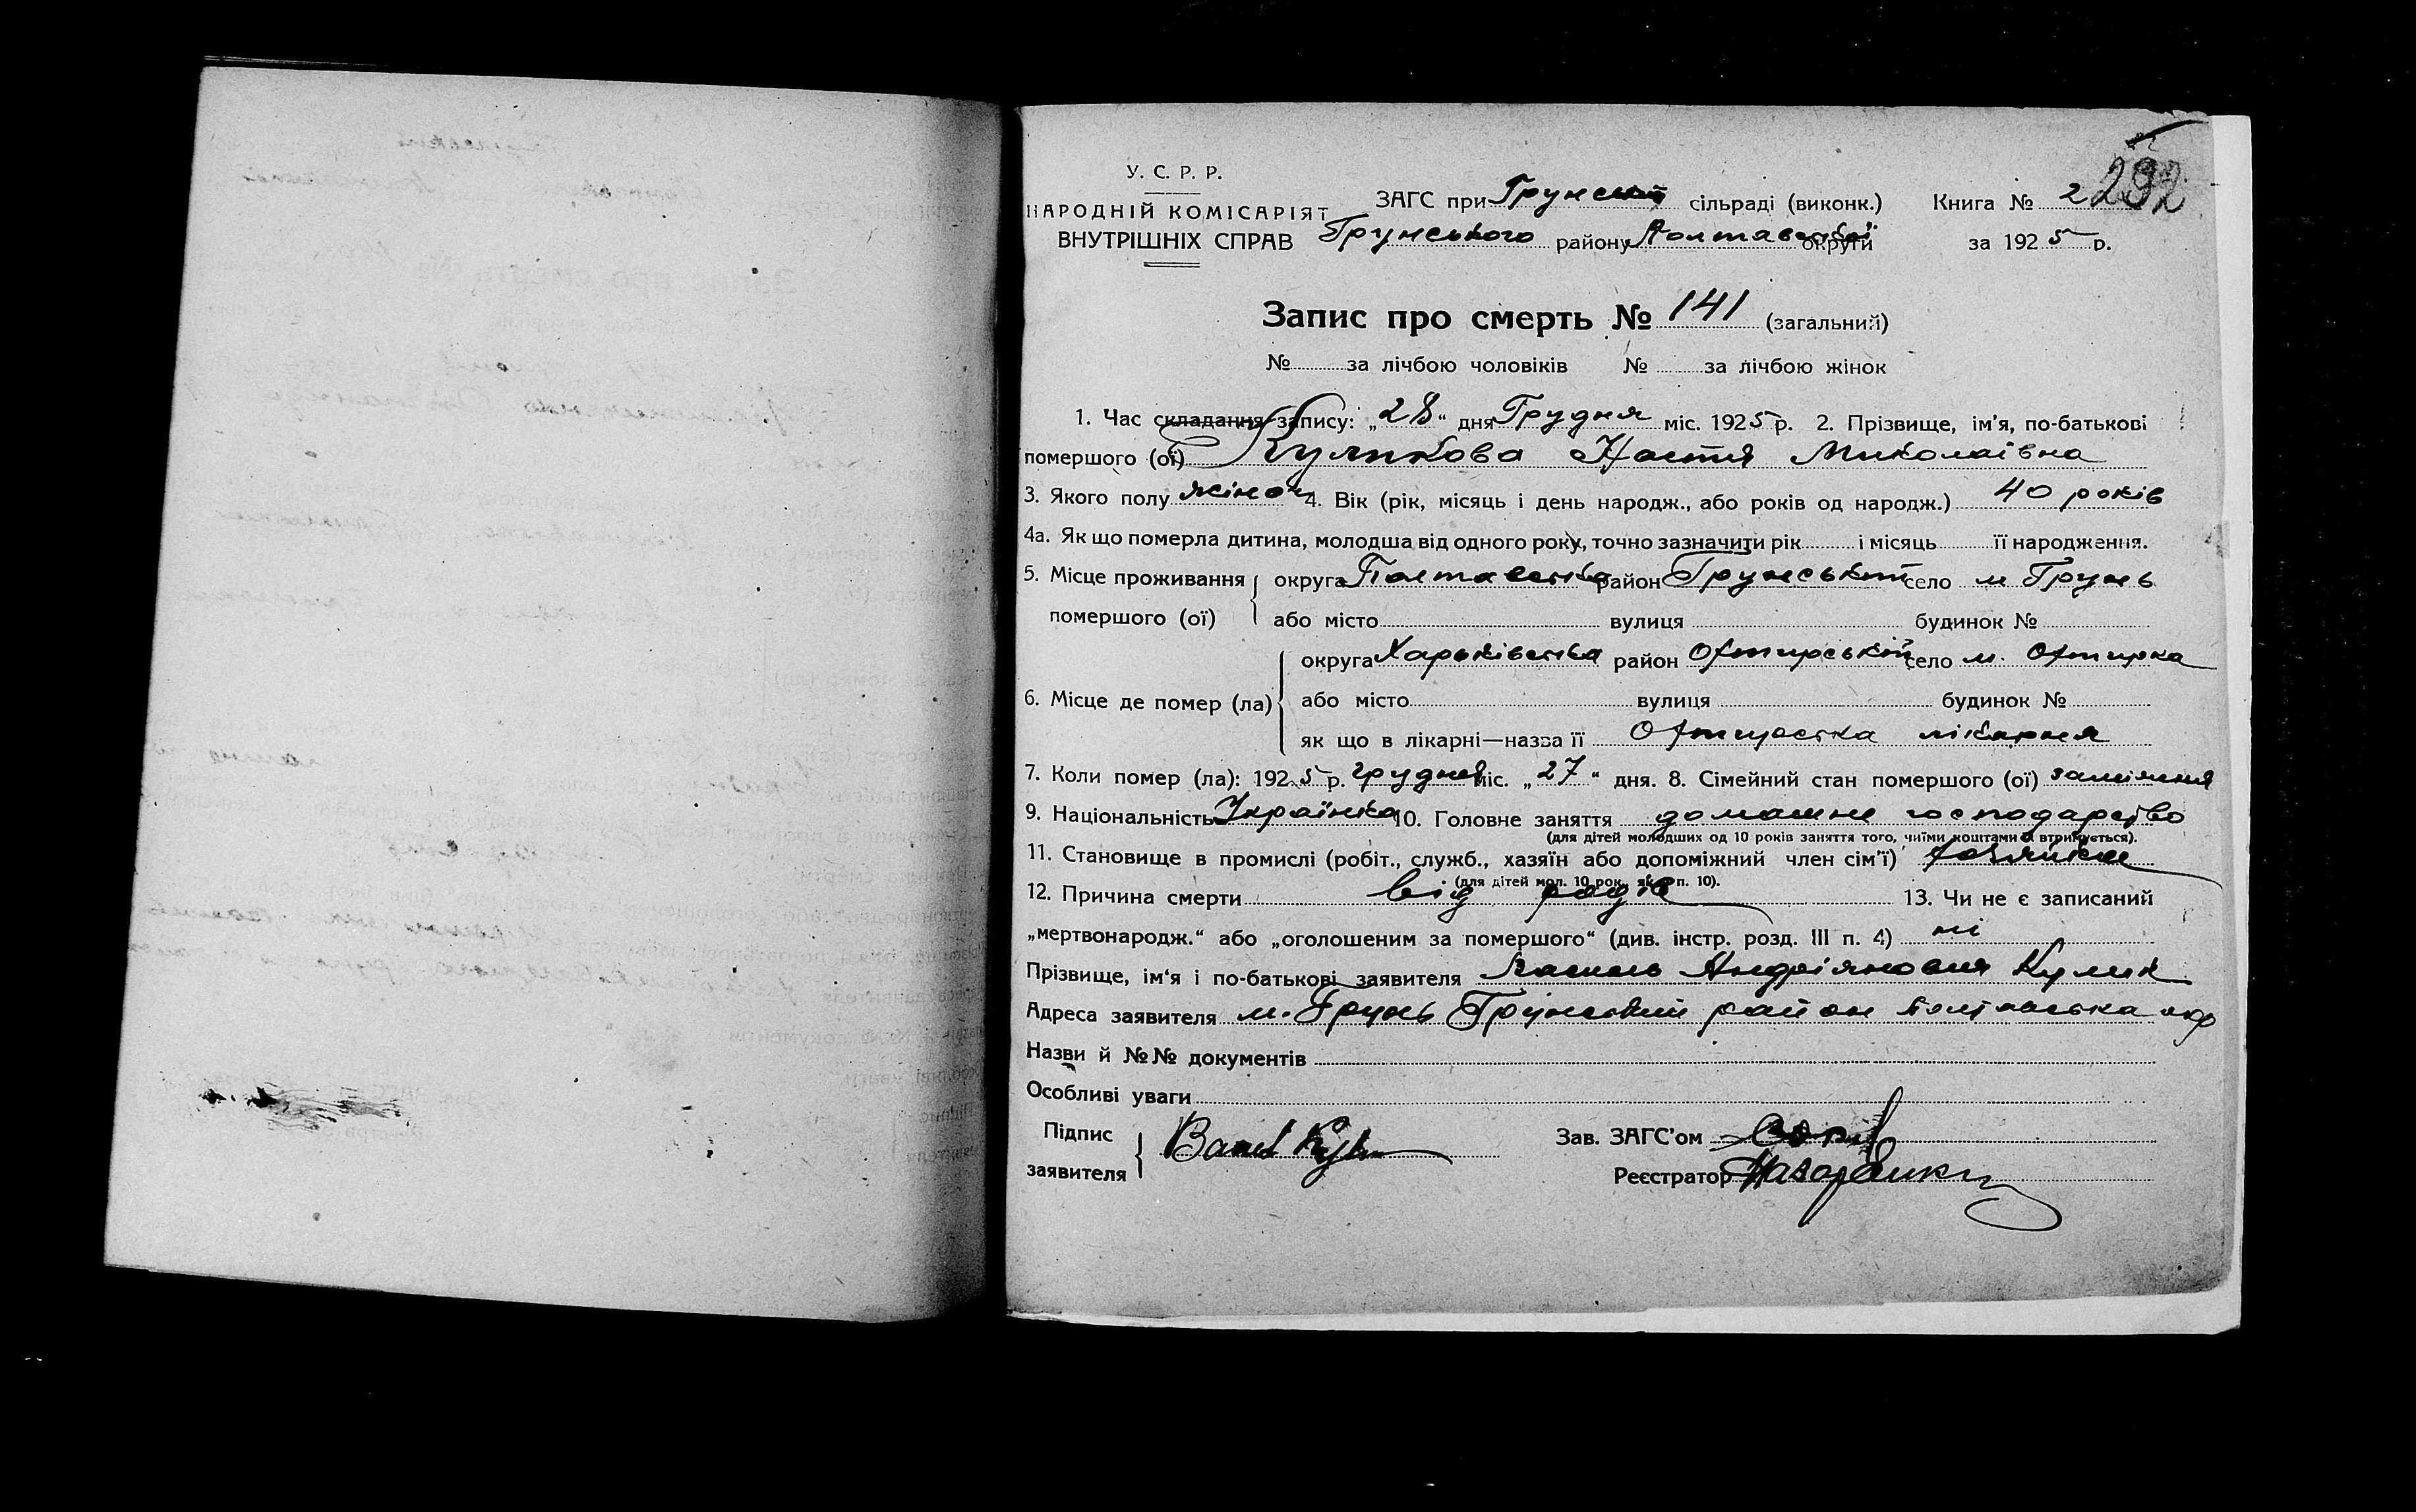 У. С. Р. Р.
НАРОДНІЙ КОМІСАРІЯТ
ВНУТРІШНІХ СПРАВ
ЗАГС при Грунській сільраді (виконк.) Книга № 2 232
Грунського району Полтавської округи за 1925 р.
Запис про смерть № 141 (загальний)
№ за лічбою чоловіків № за лічбою жінок
1. Час складання запису: „28“ дня Грудня міс. 1925 р. 2. Прізвище, ім'я, по-батькові
помершого (ої) Куликова Настя Миколаївна
3. Якого полу жіноч 4. Вік (рік, місяць і день народж., або років од народж.) 40 років
4а. Як що померла дитина, молодша від одного року, точно зазначити рік і місяць її народження.
5. Місце проживання помершого (ої) округа Полтавська район Грунський село м Грунь
або місто вулиця будинок №
6. Місце де помер (ла) округа Харьківська район Охтирський село м. Охтирка
або місто вулиця будинок №
як що в лікарні—назва її Охтирська лікарня
7. Коли помер (ла): 1925 р. грудня міс. „27“ дня. 8. Сімейний стан помершого (ої) заміжня
9. Національність Українка 10. Головне заняття домашне господарство
(для дітей молодших од 10 років заняття того, чиїми коштами й втримується).
11. Становище в промислі (робіт., служб., хазяїн або допоміжний член сім'ї) хазяйка
(для дітей мол. 10 рок. як п. 10).
12. Причина смерти від родів 13. Чи не є записаний
„мертвонародж.“ або „оголошеним за помершого“ (див. інстр. розд. III п. 4) ні
Прізвище, ім'я і по-батькові заявителя Василь Андріянович Кулик
Адреса заявителя м. Грунь Грунський район Полтавська окр
Назви й №№ документів
Особливі уваги
Підпис заявителя
Зав. ЗАГС'ом
Реєстратор